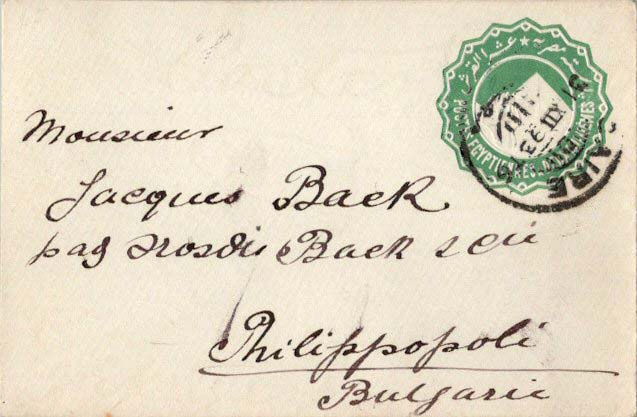 Monsieur
Jacques Back
pag Orosdi Back & Cie
Philippopoli
Bulgarie
POSTES EGYPTIENNES
CAIRE
XII 93